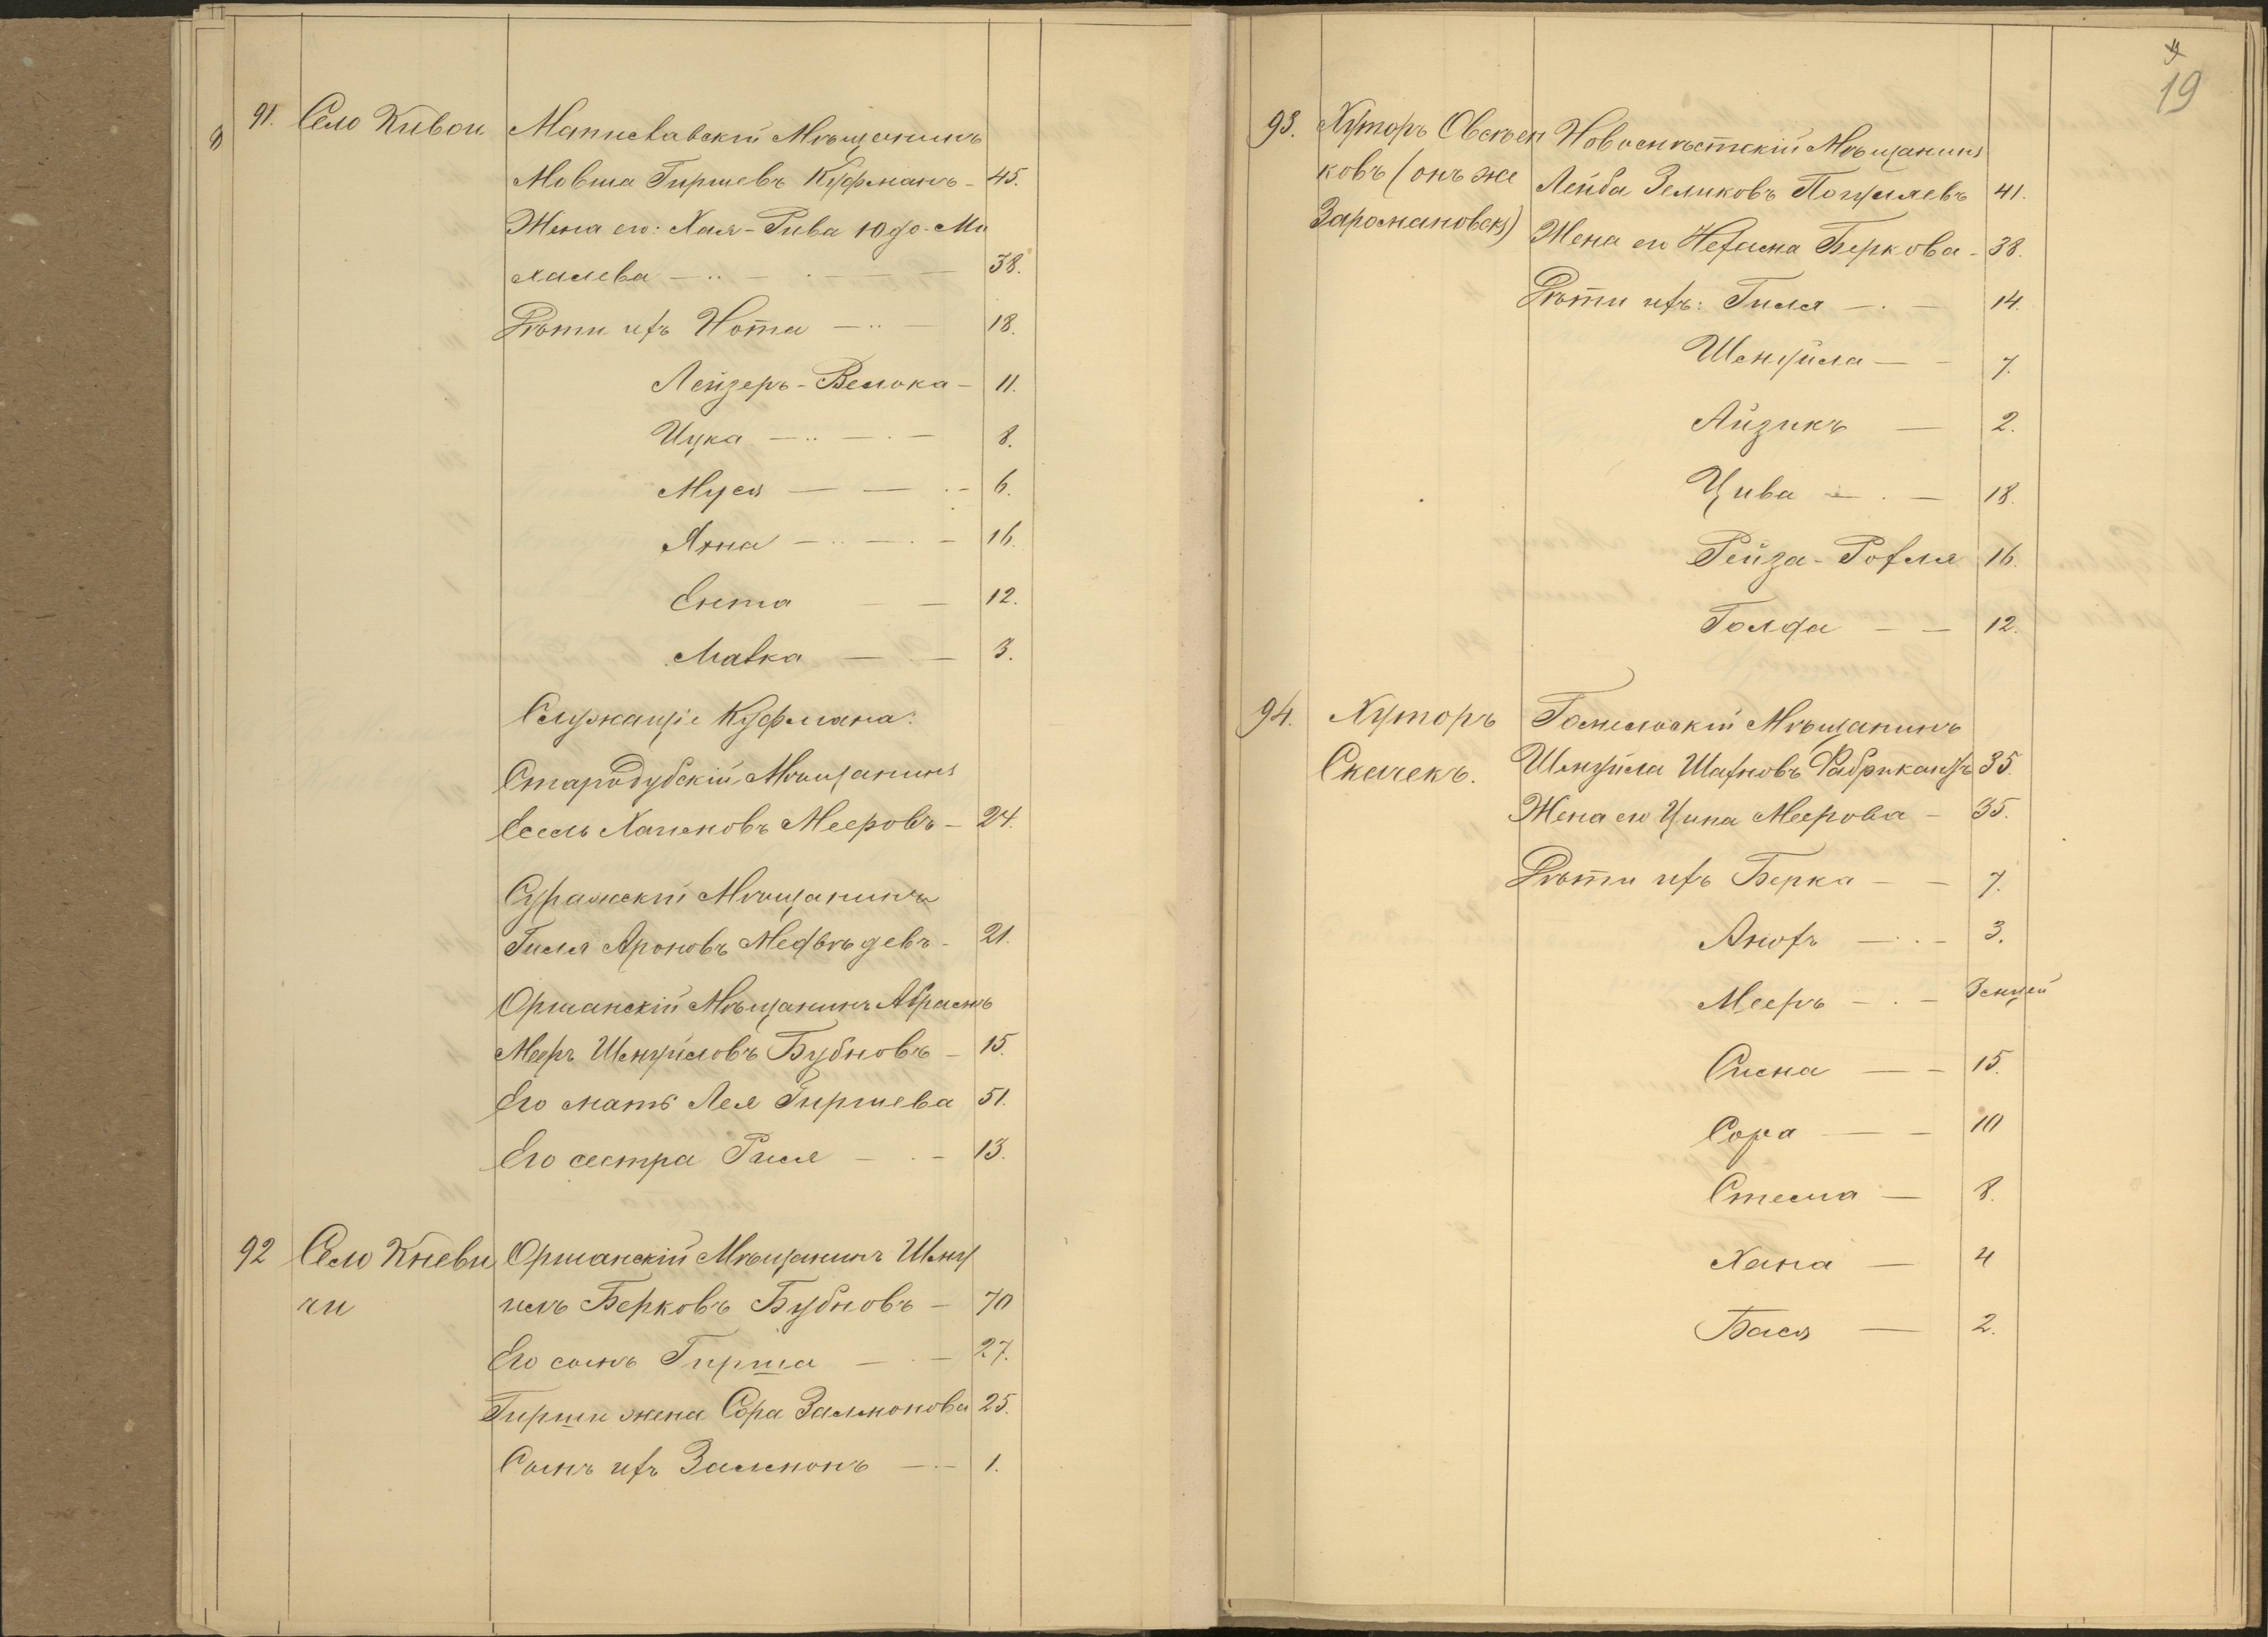 91. Село Кивои Мстиславскій Мѣщанинъ
Мовша Гиршевъ Куфманъ - 45.
Жена его: Хая-Рива Юдо-Ми
халева - 38.
Дѣти ихъ Нота - 18.
Лейзеръ-Велька - 11.
Ицка - 8.
Муся - 6.
Хана - 16.
Ента - 12.
Малка - 3.
Служащіе Куфмана:
Стародубскій Мѣщанинъ
Есель Хаимовъ Мееровъ - 24.
Суражскій Мѣщанинъ
Гиля Ароновъ Медвѣдевъ - 21.
Оршанскій Мѣщанинъ Абрамъ
Мееръ Шмуйловъ Бубновъ - 15.
Его мать Лея Гиршева 51.
Его сестра Рися - 13.
92 Село Кневи Оршанскій Мѣщанинъ Шму
чи илъ Берковъ Бубновъ - 70
Его сынъ Гирша - 27.
Гирши жена Сора Залмонова 25.
Сынъ ихъ Залмонъ - 1.
19
93. Хуторъ Овсѣен Новомѣстскій Мѣщанинъ
ковъ (онъ же Лейба Зеликовъ 41.
Заромановскъ) Жена его Нехама Беркова - 38.
Дѣти ихъ: Гиля - 14.
Шмуйла - 7.
Айзикъ - 2.
Цива - 18.
Рейза-Рохля 16.
Голда - 12.
94. Хуторъ Гомельскій Мѣщанинъ
Скачекъ. Шмуйла Шахновъ Фабрикантъ 35.
Жена его Ципа Меерова - 35.
Дѣти ихъ Берка - 7.
Анохъ - 3.
Мееръ -
Сисна - 15.
Сора - 10
Стесна - 8.
Хана - 4
Бася - 2.